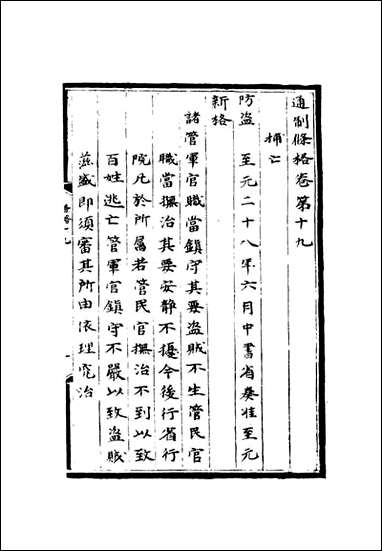 通制條格卷第十九
捕亡
防盜　至元二十八年六月中書省奏准至元
新格
諸管軍官職當鎮守其要盜賊不生管民官
職當撫治其要安静不擾今後行省行
院凡於所屬若管民官撫治不到以致
百姓逃亡管軍官鎮守不嚴以致盜賊
滋盛即須審其所由依理究治